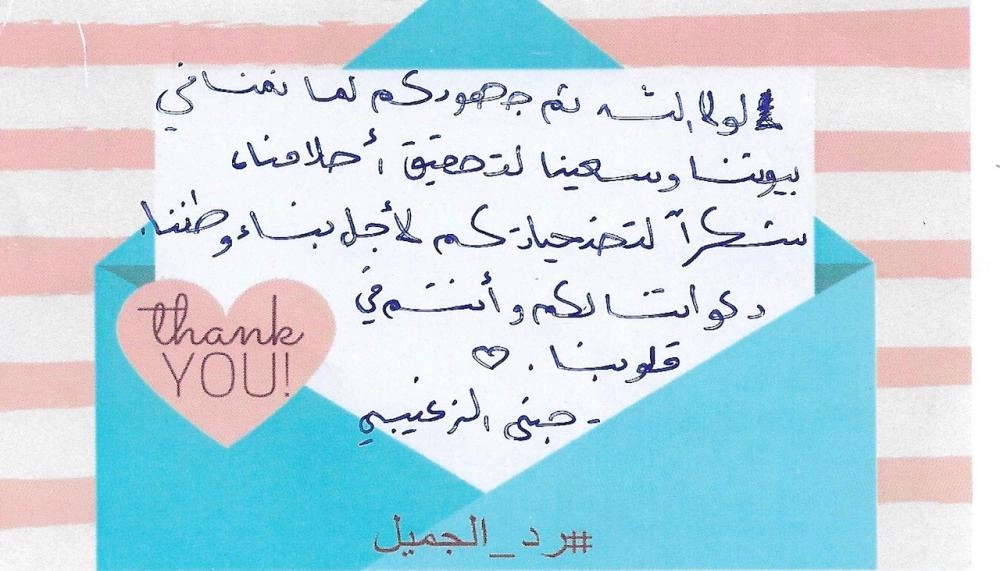 لولا الله ثم جهودكم لما نمنا في
بيوتنا وسعينا لتحقيق أحلامنا،
شكراً لتضحياتكم لأجل بناء وطننا.
دعواتنا لكم وأنتم في
قلوبنا. ♡
- جنى الزغيبي
thank
YOU!
#رد_الجميل